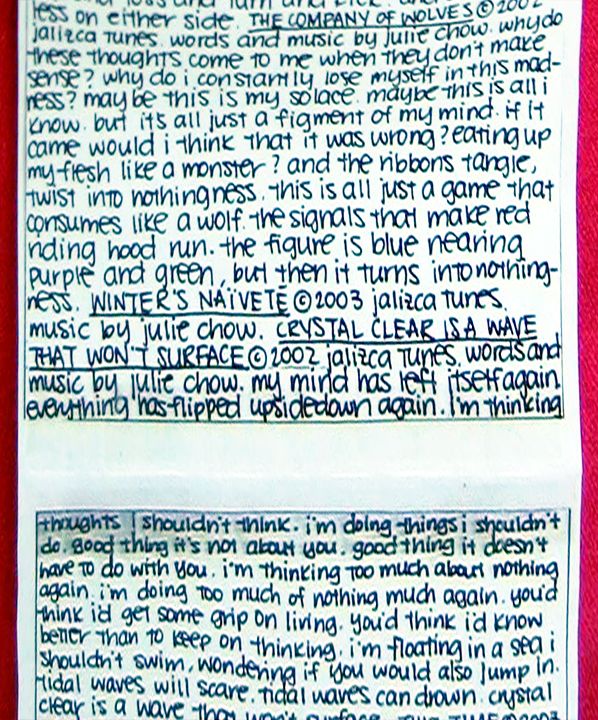 less on either side. THE COMPANY OF WOLVES © 2002
jalizca tunes. words and music by julie chow. why do
these thoughts come to me when they don't make
sense? why do i constantly lose myself in this mad-
ness? maybe this is my solace. maybe this is all i
know. but it's all just a figment of my mind. if it
came would i think that it was wrong? eating up
my flesh like a monster? and the ribbons tangle,
twist into nothingness. this is all just a game that
consumes like a wolf. the signals that make red
riding hood run. the figure is blue nearing
purple and green, but then it turns into nothing-
ness. WINTER'S NAÏVETÉ © 2003 jalizca tunes.
music by julie chow. CRYSTAL CLEAR IS A WAVE
THAT WON'T SURFACE © 2002 jalizca tunes. words and
music by julie chow. my mind has left itself again.
everything has flipped upsidedown again. i'm thinking
thoughts i shouldn't think. i'm doing things i shouldn't
do. good thing it's not about you. good thing it doesn't
have to do with you. i'm thinking too much about nothing
again. i'm doing too much of nothing much again. you'd
think i'd get some grip on living. you'd think i'd know
better than to keep on thinking. i'm floating in a sea i
shouldn't swim, wondering if you would also jump in.
tidal waves will scare. tidal waves can drown. crystal
clear is a wave that won't surface.